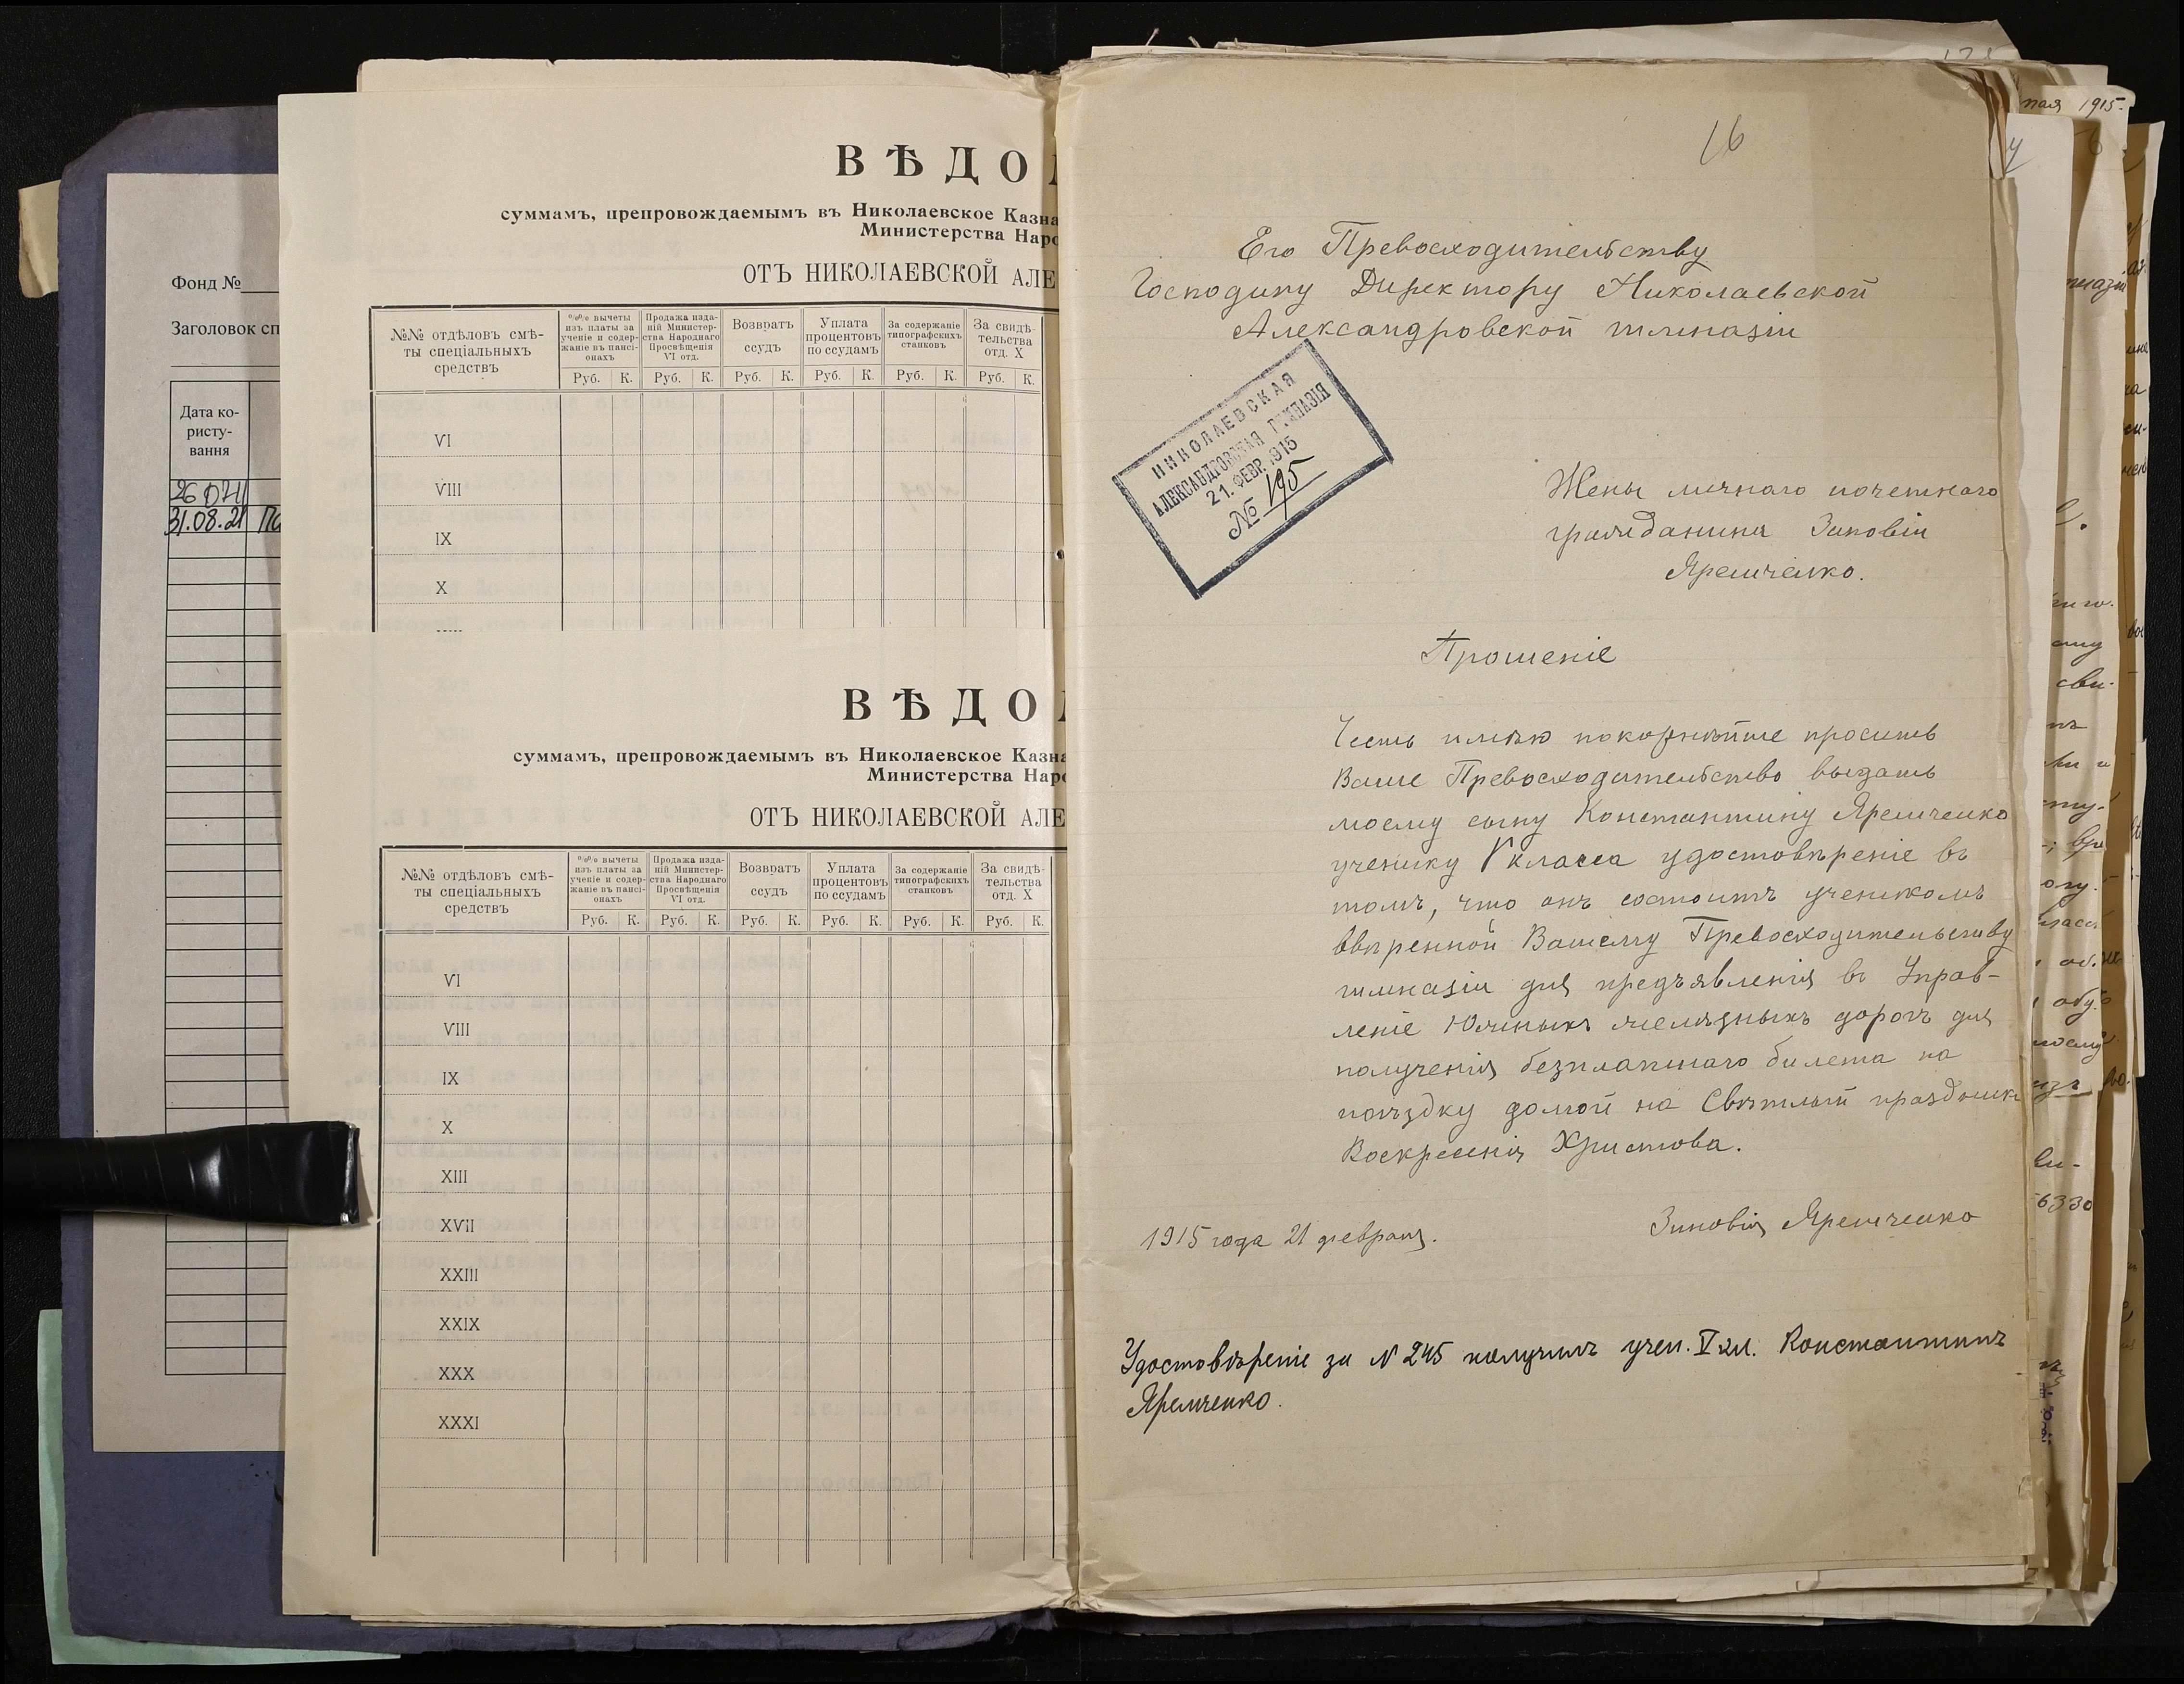 Фонд №
Заголовок сп
Дата ко-
ристу-
вання
31.08.21
ВѢДО
суммамъ, препровождаемымъ въ Николаевское Казна
Министерства Наро
ОТЪ НИКОЛАЕВСКОЙ АЛЕ
№№ отдѣловъ смѣ-
ты спеціальныхъ
средствъ
%% вычеты
изъ платы за
ученіе и содер-
жаніе въ пансі-
онахъ
Продажа изда-
ній Министер-
ства Народнаго
Просвѣщенія
VI отд.
Возвратъ
ссудъ
Уплата
процентовъ
по ссудамъ
За содержаніе
типографскихъ
станковъ
За свидѣ-
тельства
отд. X
Руб. К. Руб. К. Руб. К. Руб. К. Руб. К. Руб. К.
VI
VIII
IX
X
ВѢДО
суммамъ, препровождаемымъ въ Николаевское Казна
Министерства Наро
ОТЪ НИКОЛАЕВСКОЙ АЛЕ
№№ отдѣловъ смѣ-
ты спеціальныхъ
средствъ
%% вычеты
изъ платы за
ученіе и содер-
жаніе въ пансі-
онахъ
Продажа изда-
ній Министер-
ства Народнаго
Просвѣщенія
VI отд.
Возвратъ
ссудъ
Уплата
процентовъ
по ссудамъ
За содержаніе
типографскихъ
станковъ
За свидѣ-
тельства
отд. X
Руб. К. Руб. К. Руб. К. Руб. К. Руб. К. Руб. К.
VI
VIII
IX
X
XIII
XVII
XXIII
XXIX
XXX
XXXI
16
Его Превосходительству
Господину Директору Николаевской
Александровской гимназіи
НИКОЛАЕВСКАЯ
АЛЕКСАНДРОВСКАЯ ГИМНАЗІЯ
21. ФЕВР. 1915
№ 195
Жены личнаго почетнаго
гражданина Зиновіи
Яремченко.
Прошеніе
Честь имѣю покорнѣйше просить
Ваше Превосходительство выдать
моему сыну Константину Яремченко
ученику V класса удостовѣреніе въ
томъ, что онъ состоитъ ученикомъ
ввѣренной Вашему Превосходительству
гимназіи для предъявленія въ Управ-
леніе Южныхъ желѣзныхъ дорогъ для
полученія безплатнаго билета на
поѣздку домой на Свѣтлый праздникъ
Воскресенія Христова.
1915 года 21 февраля.
Зиновія Яремченко
Удостовѣреніе за № 245 получилъ учен. V кл. Константинъ
Яремченко.
мая 1915.